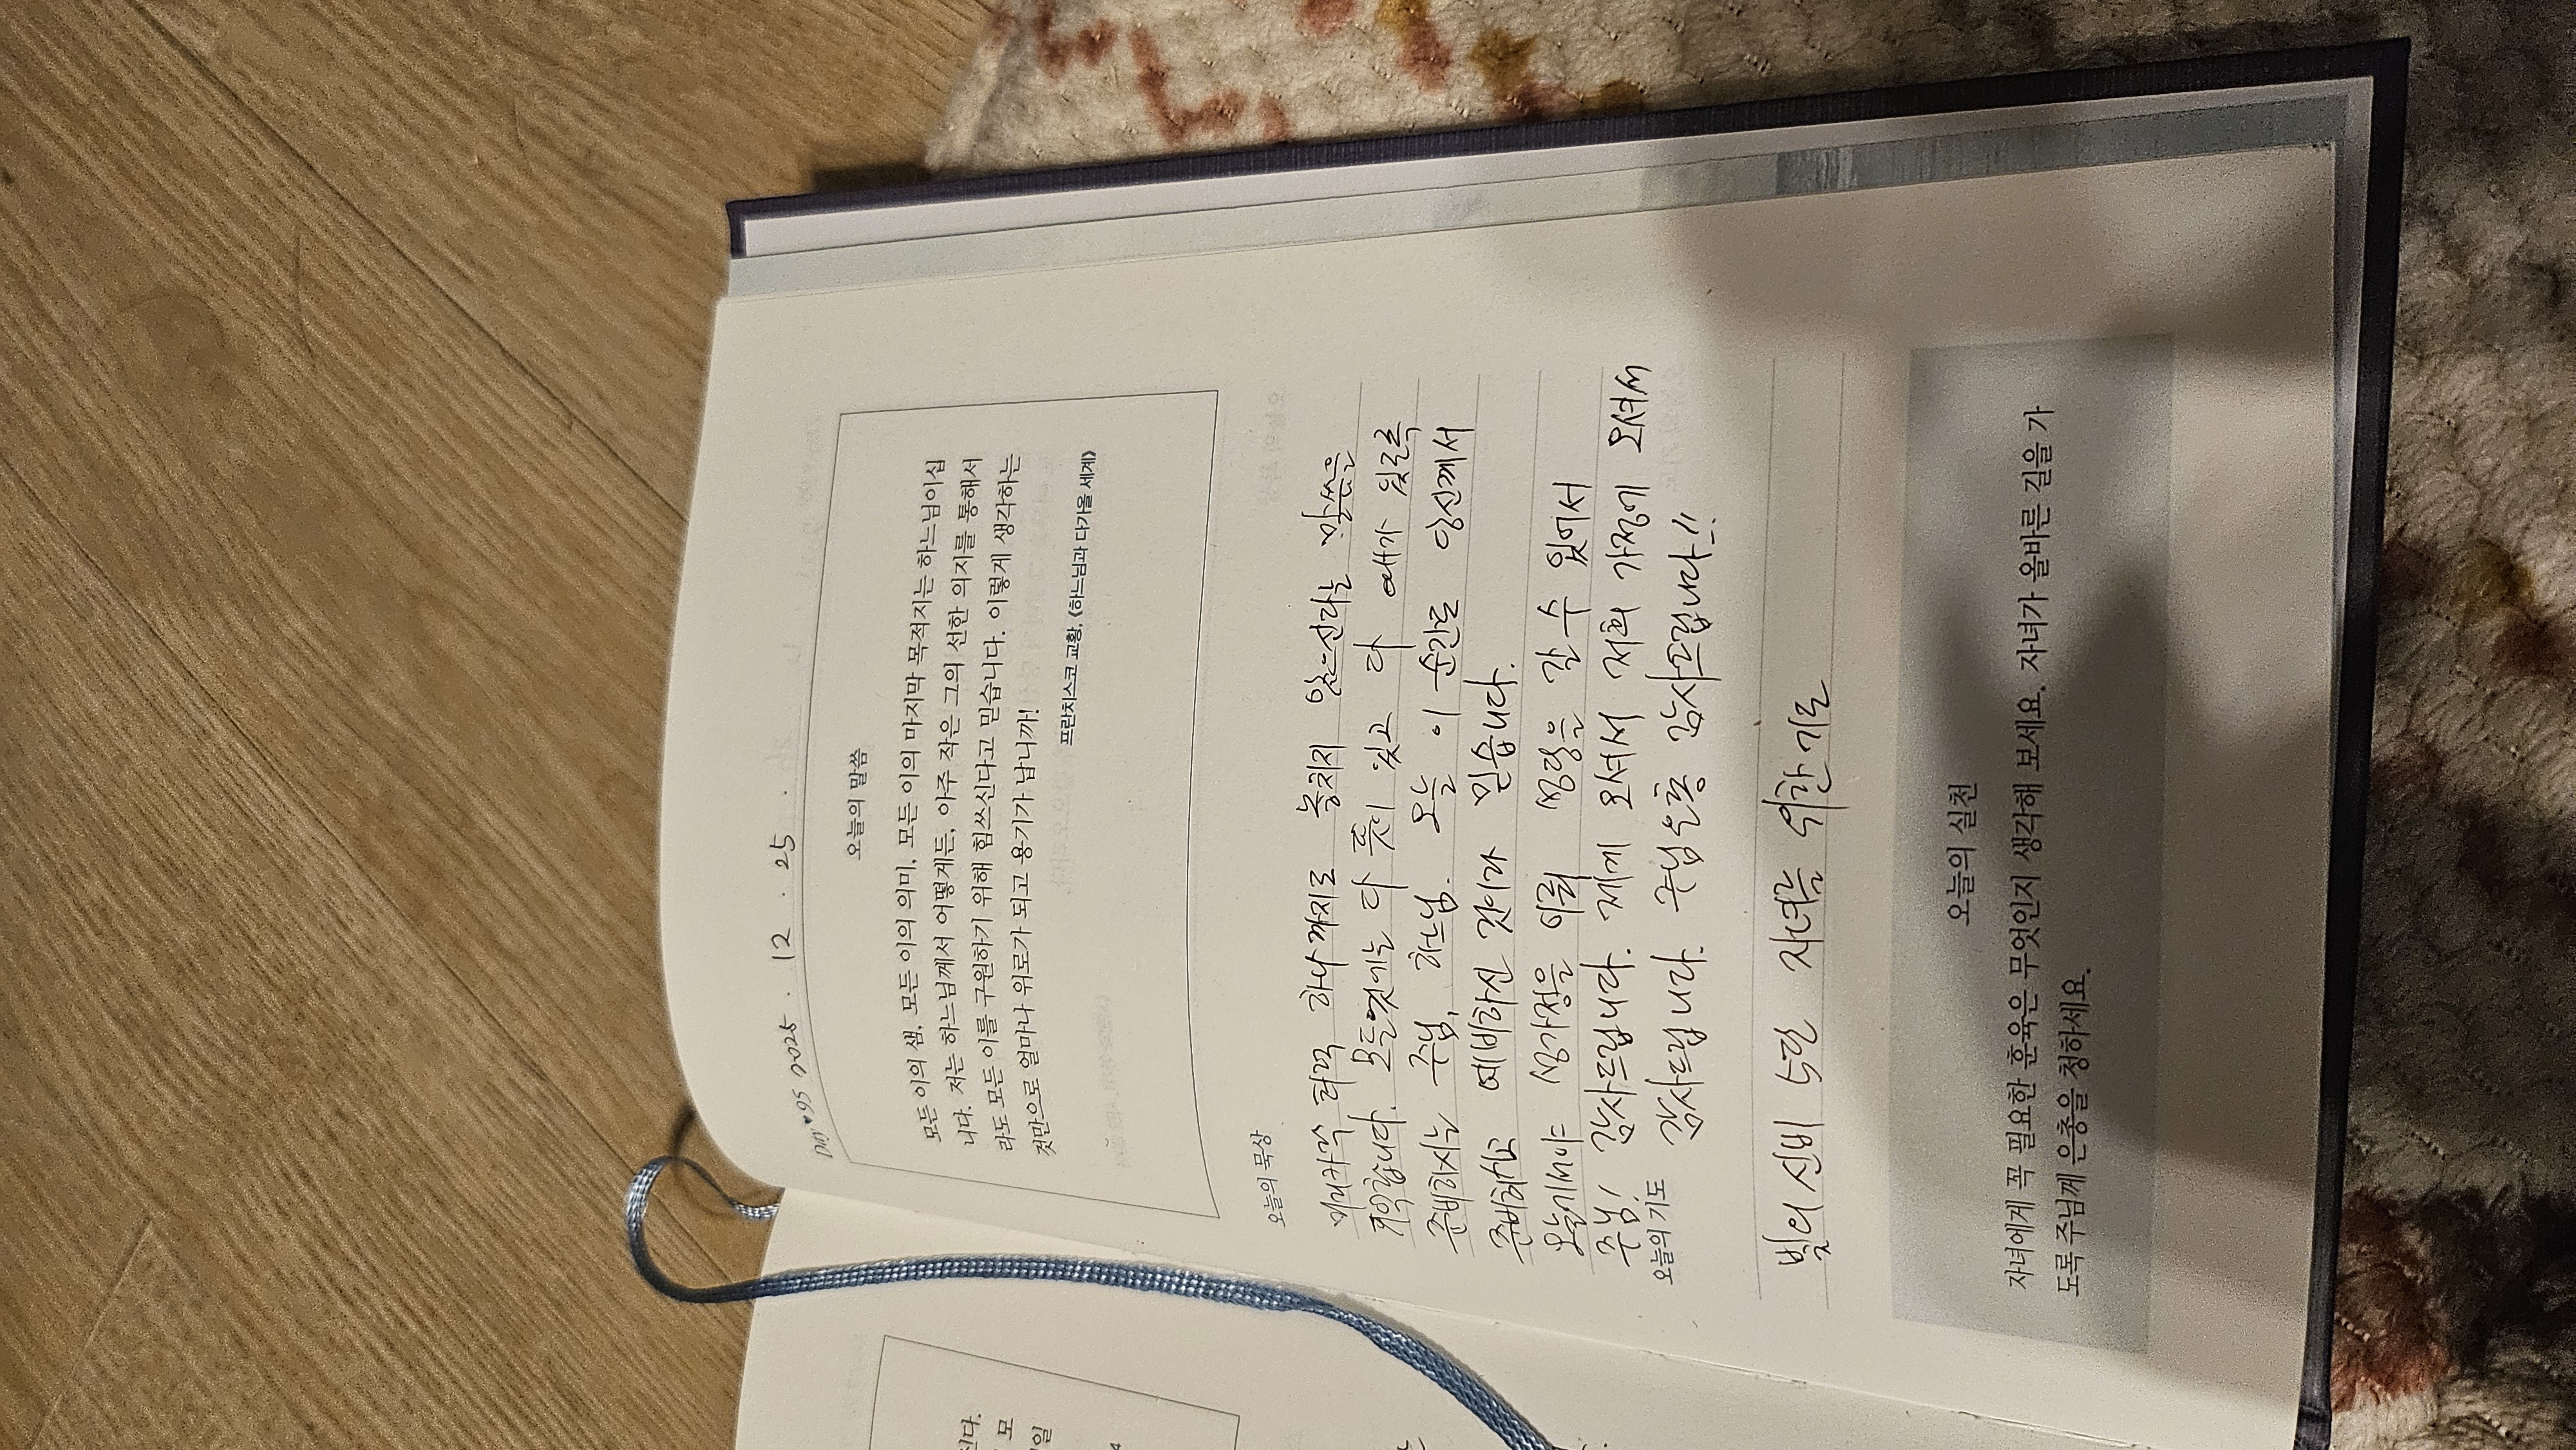 DAY•95 2025 . 12 . 25
오늘의 말씀
모든 이의 샘, 모든 이의 의미, 모든 이의 마지막 목적지는 하느님이십
니다. 저는 하느님께서 어떻게든, 아주 작은 그의 선한 의지를 통해서
라도 모든 이를 구원하기 위해 힘쓰신다고 믿습니다. 이렇게 생각하는
것만으로 얼마나 위로가 되고 용기가 납니까!
프란치스코 교황, 《하느님과 다가올 세계》
오늘의 묵상
머리카락 터럭 하나까지도 놓치지 않으신다는 말씀을
기억합니다. 모든것에는 다 뜻이 있고 다 때가 있도록
준비하시는 주님, 하느님. 오늘 이 순간도 당신께서
준비하시고 예비하신 것이라 믿습니다.
오늘에서야 성가정을 이뤄 성탄을 갈 수 있어서
주님! 감사드립니다. 제게 오셔서 저희 가정에 오셔서
감사드립니다. 주님은총 감사드립니다!!
오늘의 기도
빛의 신비 5단 자녀를 위한 기도
오늘의 실천
자녀에게 꼭 필요한 훈육은 무엇인지 생각해 보세요. 자녀가 올바른 길을 가
도록 주님께 은총을 청하세요.
신다.
모
일